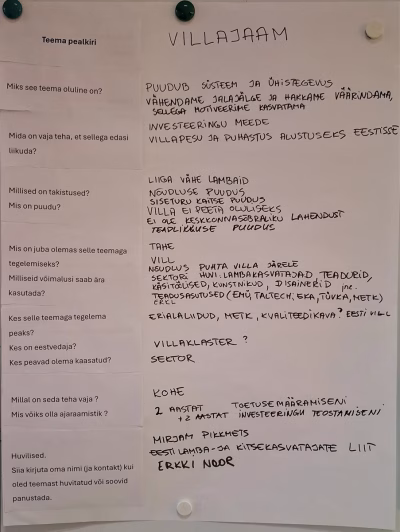 Teema pealkiri
VILLAJAAM
Miks see teema oluline on?
PUUDUB SÜSTEEM JA ÜHISTEGEVUS
VÄHENDAME JALAJÄLGE JA HAKKAME VÄÄRINDAMA,
SELLEGA MOTIVEERIME KASVATAMA
Mida on vaja teha, et sellega edasi
liikuda?
INVESTEERINGU MEEDE
VILLAPESU JA PUHASTUS ALUSTUSEKS EESTISSE
Millised on takistused?
Mis on puudu?
LIIGA VÄHE LAMBAID
NÕUDLUSE PUUDUS
SISETURU KAITSE PUUDUS
VILLA EI PEETA OLULISEKS
EI OLE KESKKONNASÕBRALIKU LAHENDUST
TEADLIKKUSE PUUDUS
Mis on juba olemas selle teemaga
tegelemiseks?
Milliseid võimalusi saab ära
kasutada?
TAHE
VILL
NÕUDLUS PUHTA VILLA JÄRELE
SEKTORI HUVI: LAMBAKASVATAJAD, TEADURID,
KÄSITÖÖLISED, KUNSTNIKUD, DISAINERID jne.
TEADUSASUTUSED (EMÜ, TALTECH, EKA, TÜVKA, METK)
Kes selle teemaga tegelema
peaks?
Kes on eestvedaja?
Kes peavad olema kaasatud?
ERIALALIIDUD, METK, KVALITEEDIKAVA? EESTI VILL
VILLAKLASTER ?
SEKTOR
Millal on seda teha vaja ?
Mis võiks olla ajaraamistik ?
KOHE
2 AASTAT TOETUSE MÄÄRAMISENI
+2 AASTAT INVESTEERINGU TEOSTAMISENI
Huvilised.
Siia kirjuta oma nimi (ja kontakt) kui
oled teemast huvitatud või soovid
panustada.
MIRJAM PIKKMETS
EESTI LAMBA- JA KITSEKASVATAJATE LIIT
ERKKI NOOR